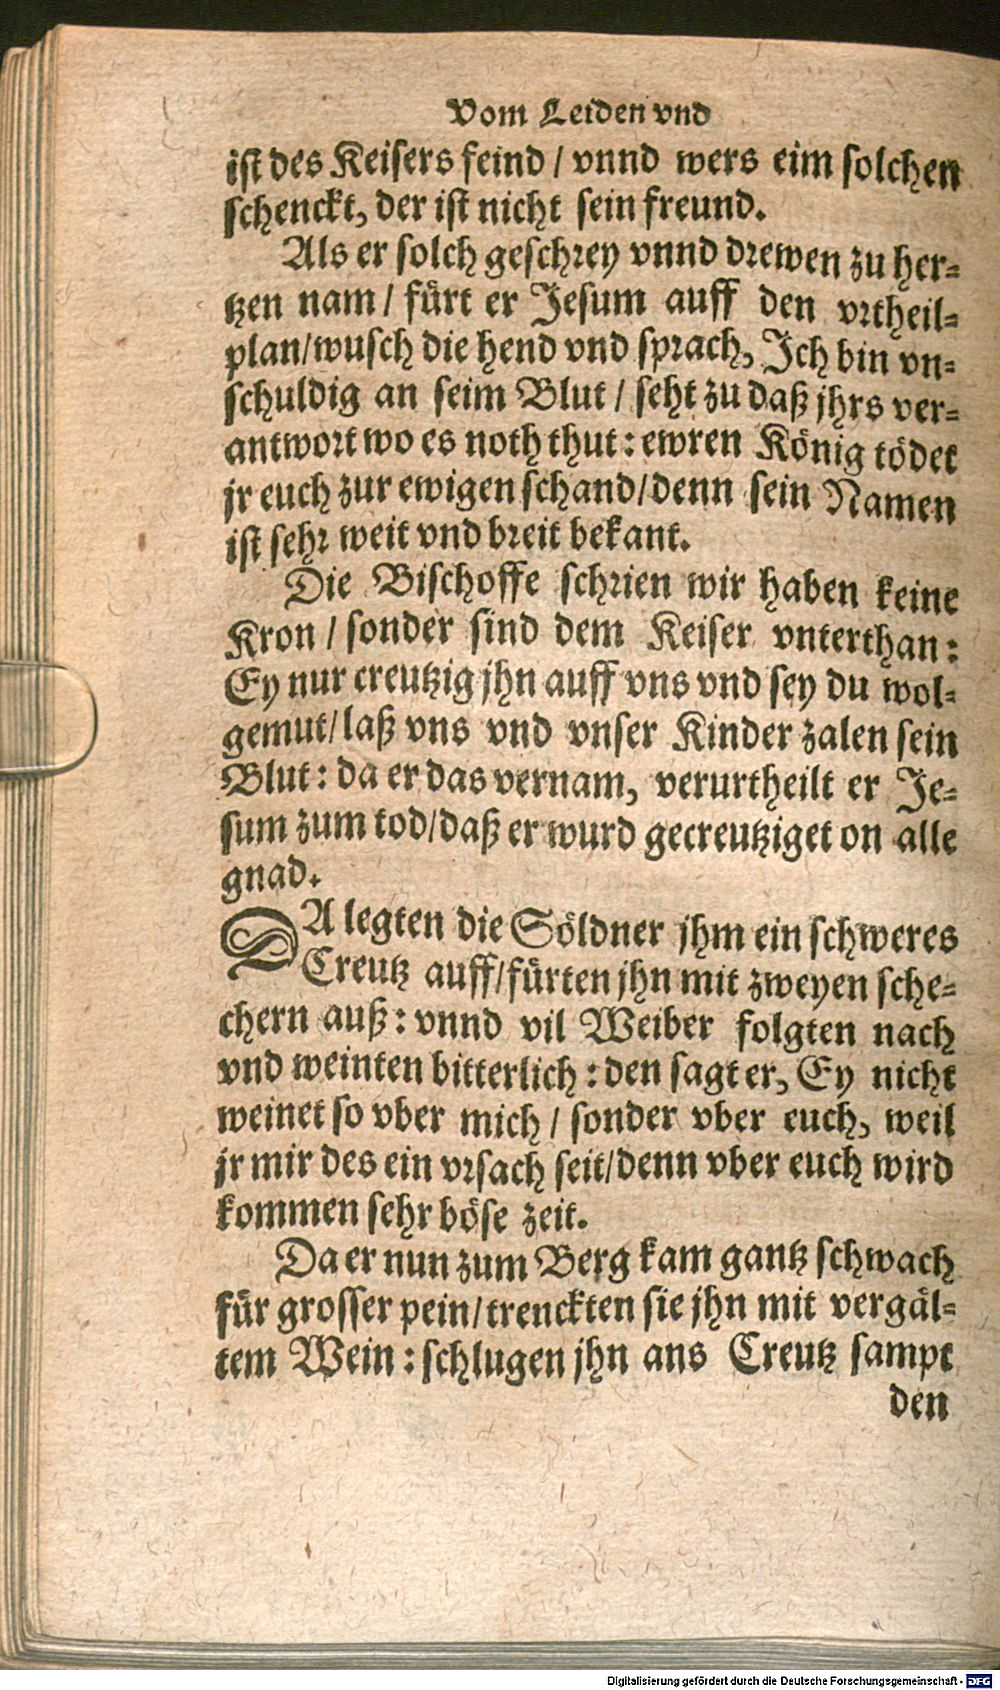 Vom Leiden vnd
ist des Keisers feind / vnnd wers eim solchen
schenckt, der ist nicht sein freund.
Als er solch geschrey vnnd drewen zu her-
tzen nam / fürt er Jesum auff den vrtheil-
plan/wusch die hend vnd sprach, Jch bin vn-
schuldig an seim Blut / seht zu daß jhrs ver-
antwort wo es noth thut: ewren König tödet
jr euch zur ewigen schand/denn sein Namen
ist sehr weit vnd breit bekant.
Die Bischoffe schrien wir haben keine
Kron / sonder sind dem Keiser vnterthan:
Ey nur creutzig jhn auff vns vnd sey du wol-
gemut/laß vns vnd vnser Kinder zalen sein
Blut: da er das vernam, verurtheilt er Je-
sum zum tod/daß er wurd gecreutziget on alle
gnad.
DA legten die Söldner jhm ein schweres
Creutz auff/fürten jhn mit zweyen sche-
chern auß: vnnd vil Weiber folgten nach
vnd weinten bitterlich: den sagt er, Ey nicht
weinet so vber mich / sonder vber euch, weil
jr mir des ein vrsach seit/denn vber euch wird
kommen sehr böse zeit.
Da er nun zum Berg kam gantz schwach
für grosser pein/trenckten sie jhn mit vergäl-
tem Wein: schlugen jhn ans Creutz sampt
den
Digitalisierung gefördert durch die Deutsche Forschungsgemeinschaft - DFG